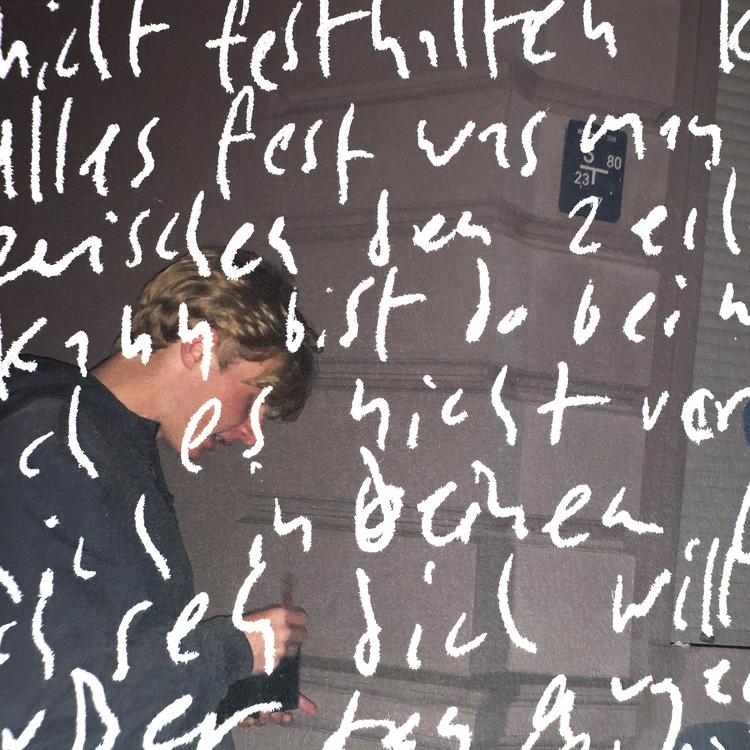 nicht festhalten k
alles fest was man
zwischen den Zeil
kann bist du bei m
ich es nicht ver
mich in deinen A
ich seh dich will
3 80
23 T